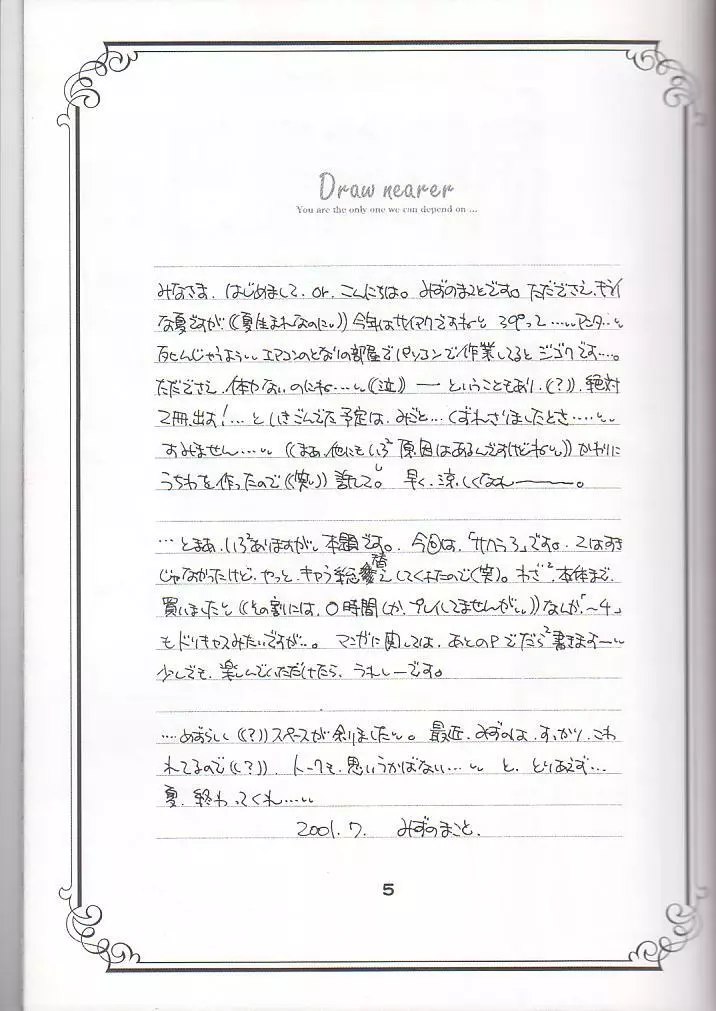 Draw nearer
You are the only one we can depend on ...
みなさま、はじめまして、or、こんにちは。みずのまことです。ただでさえ、キライ
な夏ですが((夏生まれなのに。))今年はサイアクですねぇ 39°って……アンタ…
死んじゃうよぅ… エアコンのとなりの部屋でパソコンで作業してるとジゴクです…。
ただでさえ、体力ないのにね……((泣)) ― ということもあり、(?)、絶対
2冊、出す!…といきごんでた予定は、みごと…くずれさりましたとさ……
すみません…… ((まぁ、他にもいろ²原因はあるんですけどねぇ))かわりに
うちわを作ったので((笑))許して。 早く、涼しくなれ―――。
…とまぁ、いろ²ありますが、本題です。今回は、「サクラ3」です。2はすき
じゃなかったけど、やっと、キャラ総替えしてくれたので(笑)。わざ²、本体まで、
買いました ((その割には、0時間しか、プレイしてませんが))なんか「～4」
もドリキャスみたいですが…。マンガに関しては、あとのPでだら²書きます～
少しでも、楽しんでいただけたら、うれしーです。
…めずらしく((?))スペースが余りました。最近、みずのは、すっかり、こわ
れてるので((?))、トークも、思いうかばない…… と、とりあえず…
夏、終わってくれ……
2001. 7. みずのまこと.
5